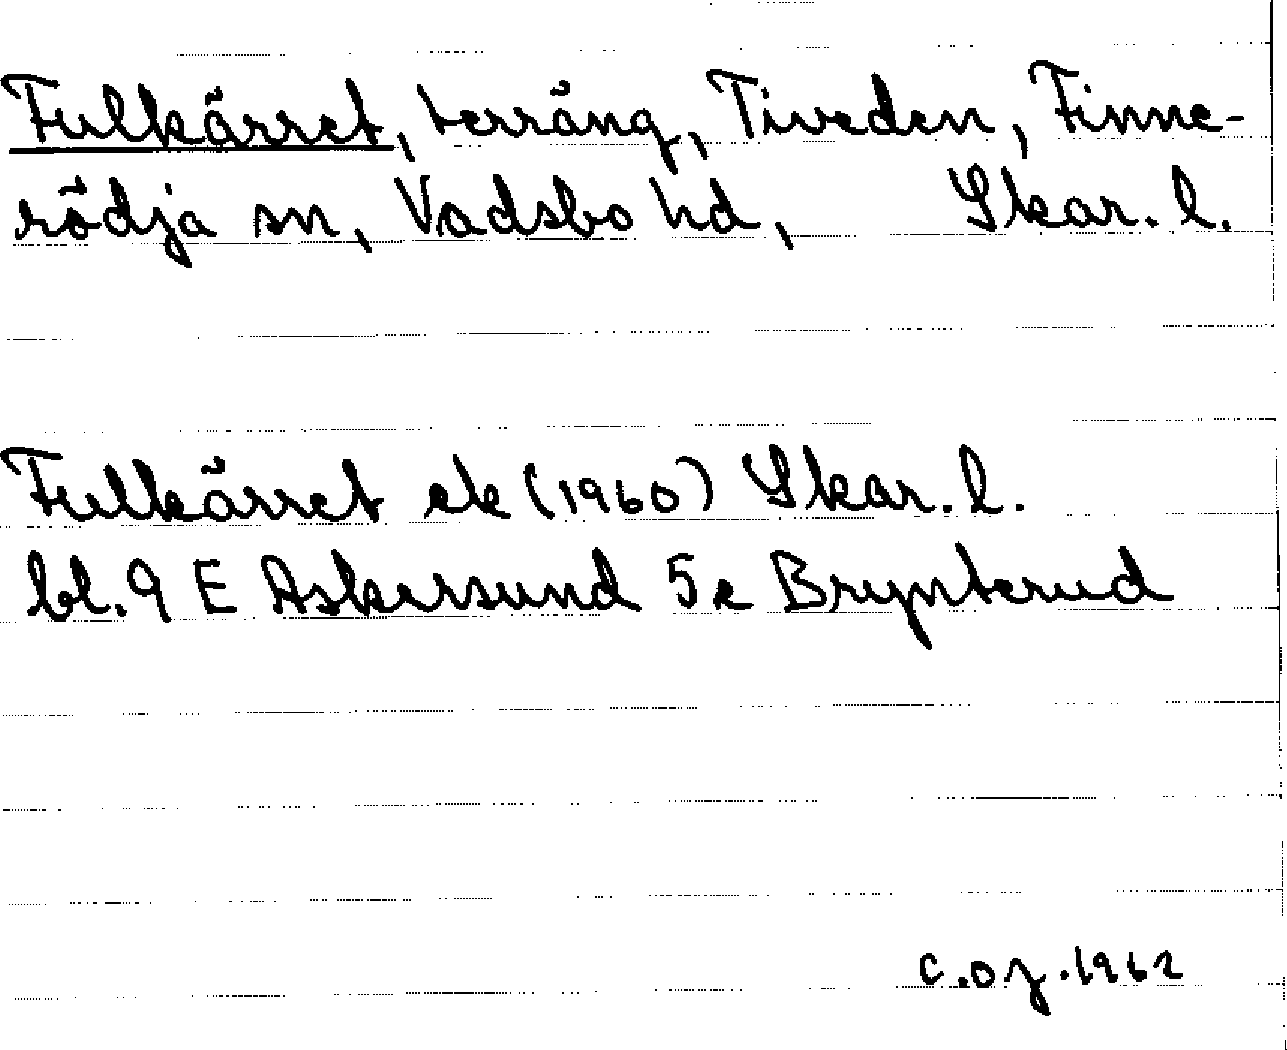 Fulkärret, terräng, Tiveden, Finne-
rödja sn, Vadsbo hd, Skar. l.
Fulkärret ek (1960) Skar. l.
bl. 9 E Askersund 5e Brynterud
C.o.z. 1962